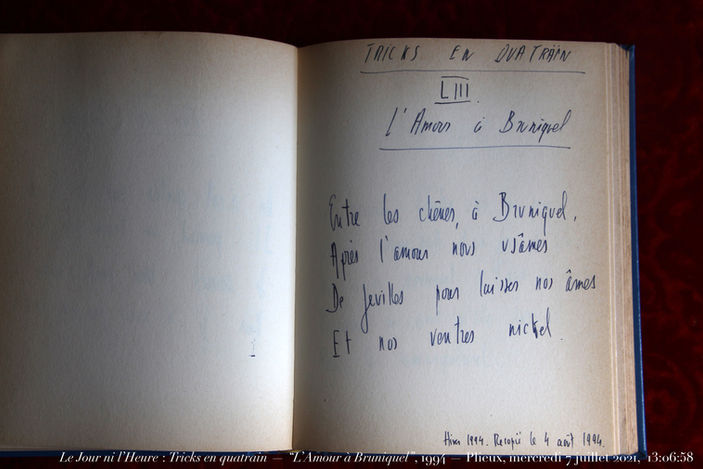 TRICKS EN QUATRAIN
LIII.
L'Amour à Bruniquel
Entre les chênes, à Bruniquel,
Après l'amour nous usâmes
De feuilles pour laisser nos âmes
Et nos ventres nickel.
Hiver 1994. Recopié le 4 août 1994.
Le Jour ni l'Heure : Tricks en quatrain — "L'Amour à Bruniquel", 1994 — Plieux, mercredi 7 juillet 2021, 13:06:58